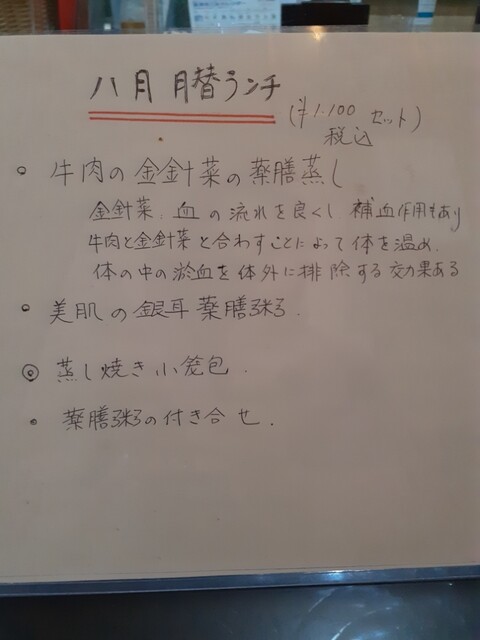 八月 月替ランチ
(¥1.100 セット)
税込
牛肉の金針菜の薬膳蒸し
金針菜:血の流れを良くし 補血作用もあり
牛肉と金針菜と合わすことによって体を温め.
体の中の淤血を体外に排除する効果ある
美肌の銀耳薬膳粥.
蒸し焼き小笼包.
薬膳粥の付き合せ.